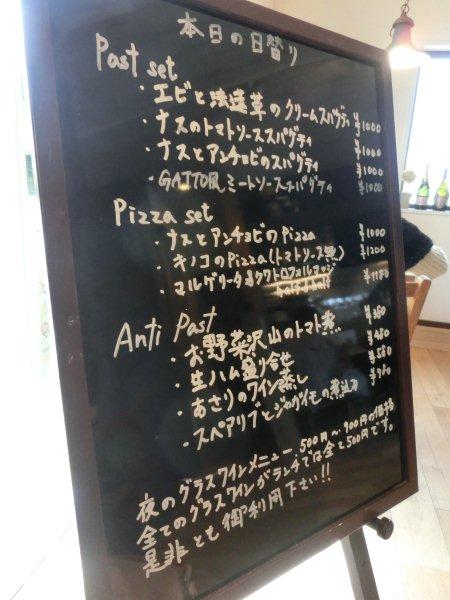 本日の日替り
Past set
・エビと法蓮草のクリームスパゲティ ¥1000
・ナスのトマトソーススパゲティ ¥1000
・ナスとアンチョビのスパゲティ ¥1000
・GATTOR ミートソーススパゲティ ¥1000
Pizza set
・ナスとアンチョビのPizza ¥1000
・キノコのPizza(トマトソース無) ¥1200
・マルゲリータ&クワトロフォルマッジ ¥1180
half & half
Anti Past
・お野菜沢山のトマト煮 ¥380
・生ハム盛り合せ ¥480
・あさりのワイン蒸し ¥580
・スペアリブとジャガイモの煮込み
夜のグラスワインメニュー、500円〜900円の価格
全てのグラスワインがランチでは全て500円です。
是非とも御利用下さい!!